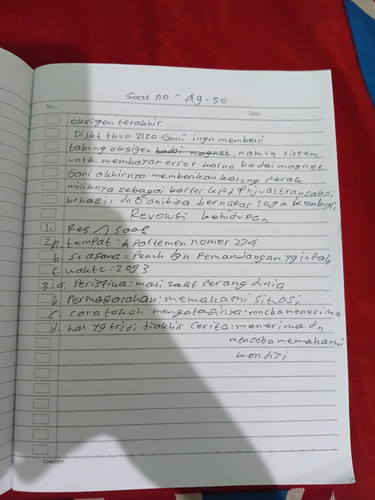 Soal no - 49-50
No.
Date:
Oksigen terakhir
Djskt thun 2150. Goni ingn membeli
tabung oksigen badai magnet, namun sistem
untk membayar error karna badai magnet.
Goni akhirnya memberikan kalung perak
miliknya sebagai barter kepd pnjual. transaksi
brhasil dn ia bernapas lega kembali
Revolusi kehidupan
1. Res / saas
2. a. tempat: Apartemen nomer 279
b. Suasana: Penuh dgn Pemandangan yg indah
c. waktu: 2093
3. a. Peristiwa: mati saat perang dunia
b. Permasalahan: memahami situasi
c. cara tokoh mengatasinya: mncba menerima
d. hal yg trjdi diakhir cerita: menerima dn
mencoba memahami
kondisi